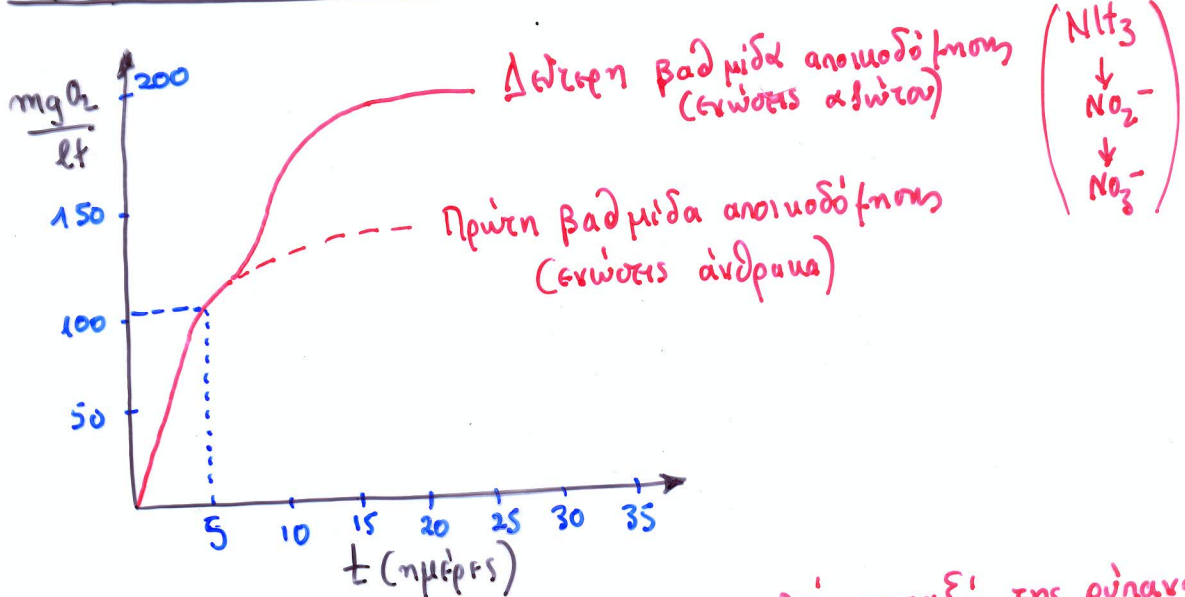 mgO₂
lt
200
150
100
50
5 10 15 20 25 30 35
t (ημέρες)
Δεύτερη βαθμίδα αποικοδόμησης
(ενώσεις αζώτου)
NH3
↓
NO₂⁻
↓
NO₃⁻
Πρώτη βαθμίδα αποικοδόμησης
(ενώσεις άνθρακα)
της ρύπαν